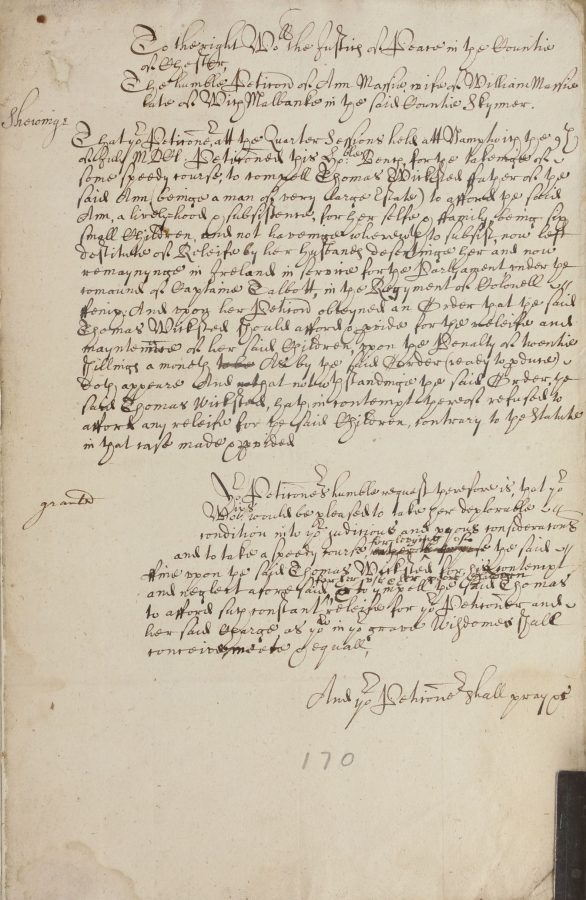 To the right Wo:ll the Justices of Peace in the Countie
of Chester,
The humble Peticon of Ann Massie wife of William Massie
late of Wich Malbanke in the said Countie Skynner.
Shewinge
That yor Peticoner, att the Quarter Sessions held att Namptwich the
of July Peticoned this hono:ble Bench, for the takeinge of
some speedy course, to compell Thomas Wicksted father of the
said Ann (beinge a man of very large Estate) to afford the said
Ann, a livelyhood & subsistence, for her selfe & ffamily being six
small Children, and not haveinge wherewith to subsist, now left
destitute of Releife by her husbands desertinge her and now
remayninge in Ireland in service for the Parliament under the
comaund of Captaine Talbott, in the Regyment of Colonell
ffenix, And upon her Peticon obteyned an Order that the said
Thomas Wicksted should afford & pvide for the releife and
mayntennce of her said Children, upon the Penalty of twentie
shillings a moneth As by the said Order (ready to pduce)
doth appeare And that notwithstandinge the said Order, the
said Thomas Wicksted, hath in contempt thereof refused to
afford any releife for the said Children, contrary to the Statute
in that case made & pvided
granted
Yor Peticoners humble request therefore is, that yor
Wors would be pleased to take her deplorable
condition into yor judicious and pious consideratons
and to take a speedy course, for levyinge of the said
ffine upon the said Thomas Wicksted for his contempt
and neglect aforesaid, to compell the said Thomas
to afford such constant releife for yor Peticoner and
her said Charge as yor in yor grave Wisdomes shall
conceive meete & equall,
And yor Peticoner shall pray &c
170